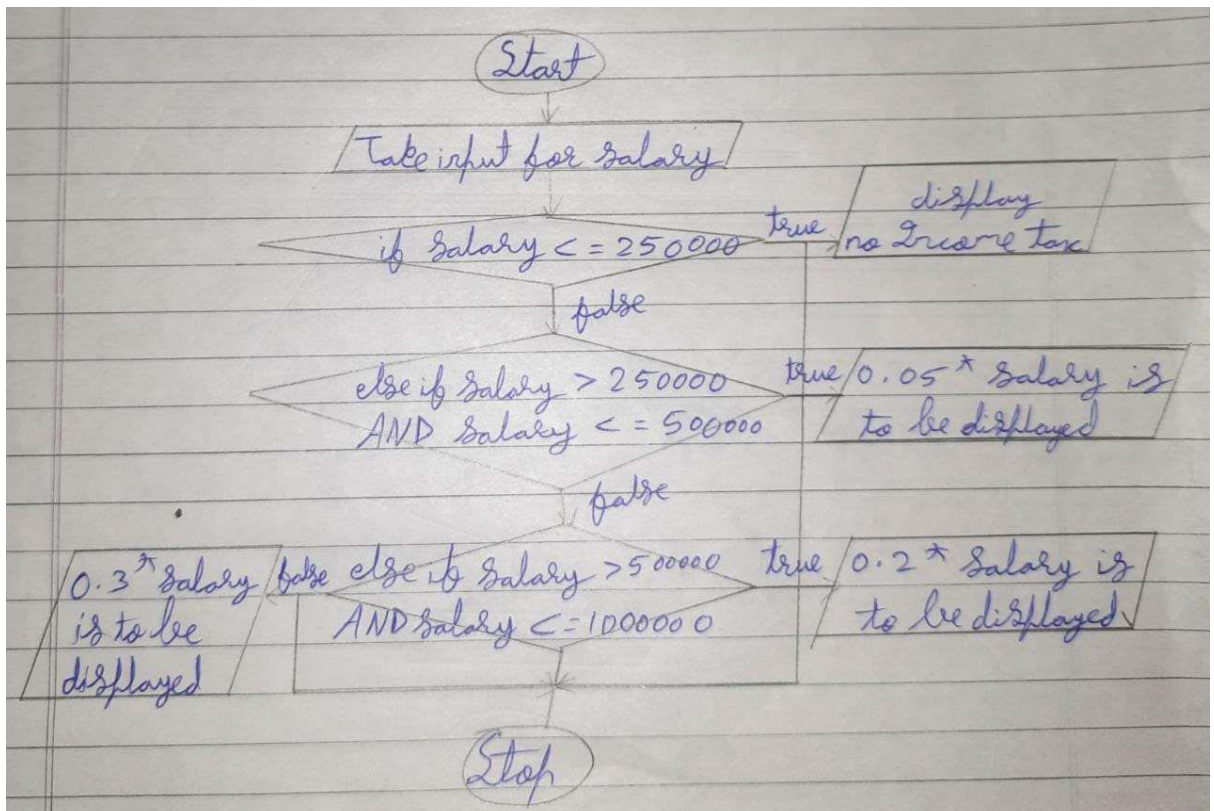 Start
Take input for salary
if salary <= 250000
true
display
no Income tax
false
else if salary > 250000
AND salary <= 500000
true
0.05 * salary is
to be displayed
false
else if salary > 500000
AND salary <= 1000000
true
0.2 * salary is
to be displayed
false
0.3 * salary
is to be
displayed
Stop